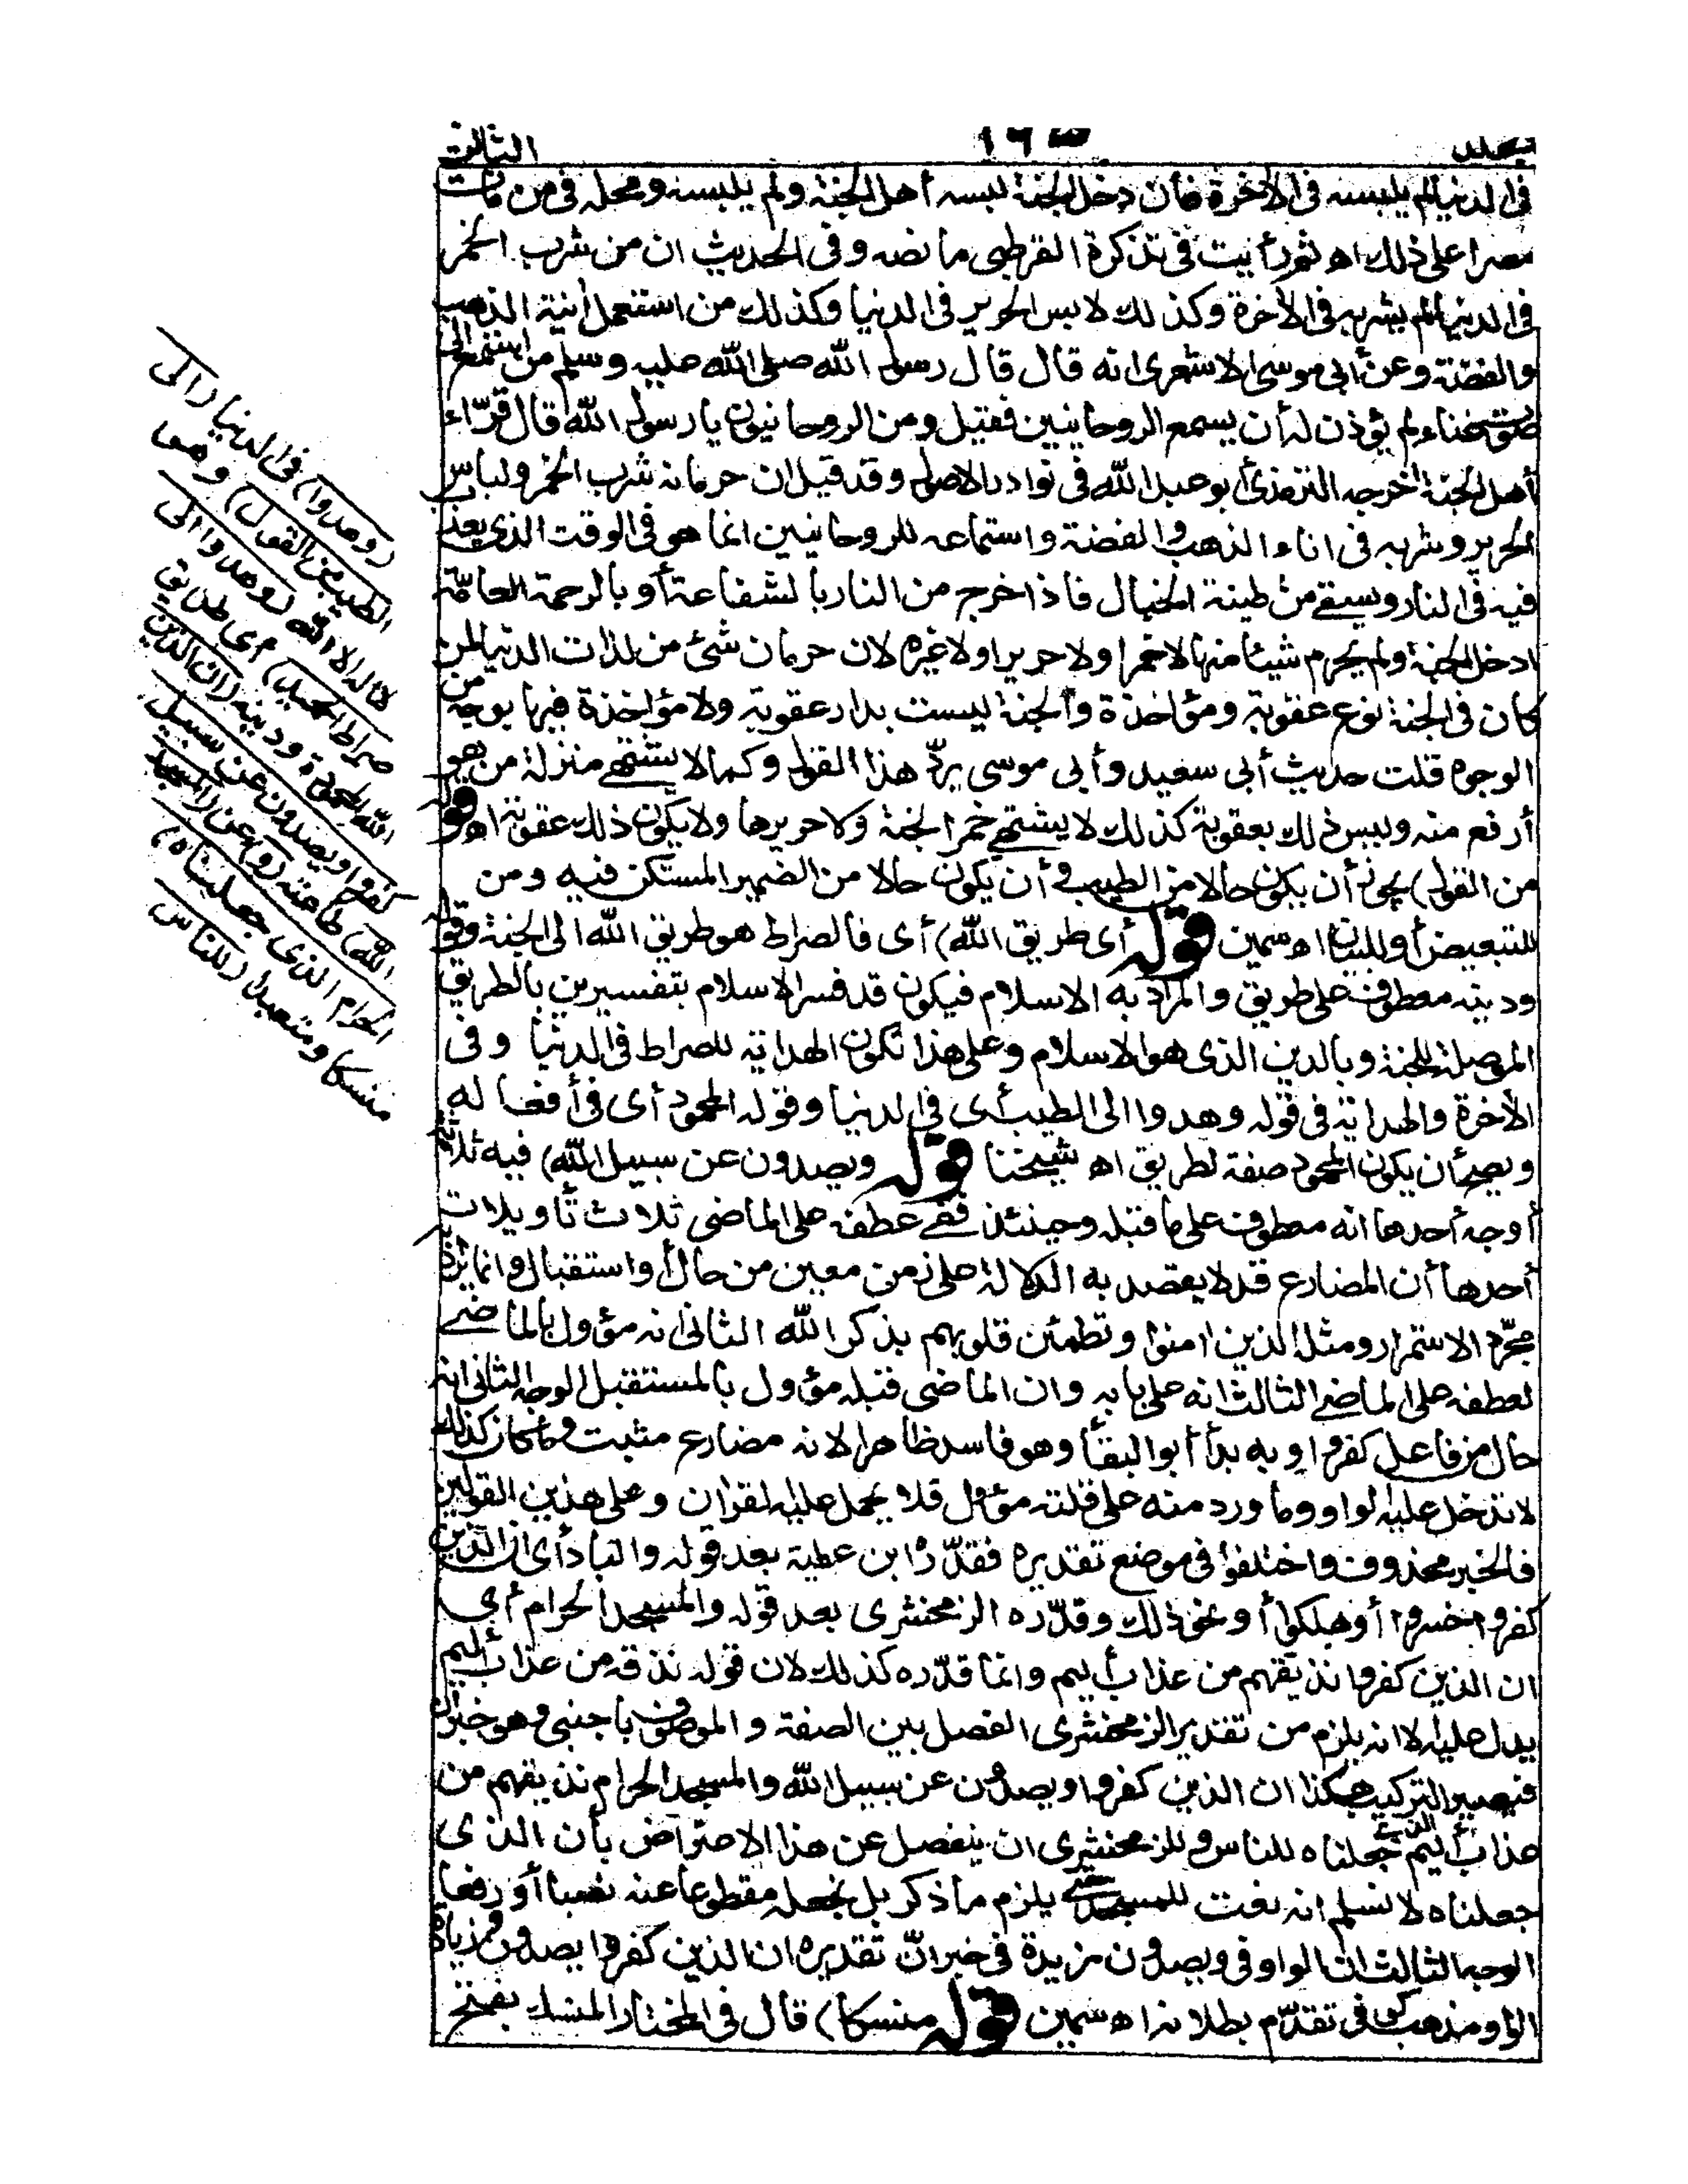 الثالث
١٦
مجلد
فى الدنيا لم يلبسه فى الاخرة فان دخل الجنة لبسه أهل الجنة ولم يلبسه ومحله فى من مات
مصرا على ذلك اه ثم رأيت فى تذكرة القرطبى ما نصه وفى الحديث ان من شرب الخمر
فى الدنيا لم يشربه فى الاخرة وكذلك لابس الحرير فى الدنيا وكذلك من استعمل أنية الذهب
والفضة وعن أبى موسى الاشعرى انه قال قال رسول الله صلى الله عليه وسلم من استمع الى
صوت غناء لم يؤذن له أن يسمع الروحانيين فقيل ومن الروحانيون يا رسول الله قال قرّاء
أهل الجنة أخرجه الترمذى أبو عبد الله فى نوادر الاصول وقد قيل ان حرمانه شرب الخمر ولباس
الحرير وشربه فى اناء الذهب والفضة واستماعه للروحانيين انما هو فى الوقت الذى يعذب
فيه فى النار ويسقى من طينة الخبال فاذا خرج من النار بالشفاعة أو بالرحمة العامّة
ادخل الجنة ولم يحرم شيئا منها لا خمرا ولا حريرا ولا غيره لان حرمان شئ من لذات الدنيا لمن
كان فى الجنة نوع عقوبة ومؤاخذة والجنة ليست بدار عقوبة ولا مؤاخذة فيها بوجه من
الوجوه قلت حديث أبى سعيد وأبى موسى يردّ هذا القول وكما لا يشتهى منزلة من هو
أرفع منه وليس ذلك بعقوبة كذلك لا يشتهى خمر الجنة ولا حريرها ولا يكون ذلك عقوبة اه قوله
من القول) يجوز أن يكون حالا من الطيب وأن يكون حالا من الضمير المستكن فيه ومن
للتبعيض أو للبيان اه سمين قوله أى طريق الله) أى فالصراط هو طريق الله الى الجنة وقوله
ودينه معطوف على طريق والمراد به الاسلام فيكون قد فسر الاسلام بتفسيرين بالطريق
الموصلة للجنة وبالدين الذى هو الاسلام وعلى هذا تكون الهداية للصراط فى الدنيا وفى
الاخرة والهداية فى قوله وهدوا الى الطيب أى فى الدنيا وقوله المحمود أى فى أفعاله
ويصح أن يكون المحمود صفة لطريق اه شيخنا قوله ويصدون عن سبيل الله) فيه ثلاثة
أوجه أحدها انه معطوف على ما قبله وحينئذ ففى عطفه على الماضى ثلاث تأويلات
أحدها أن المضارع قد لا يقصد به الدلالة على زمن معين من حال أو استقبال وانما يراد به
مجرّد الاستمرار ومثله الذين امنوا وتطمئن قلوبهم بذكر الله الثانى انه مؤول بالماضى
لعطفه على الماضى الثالث انه على بابه وان الماضى قبله مؤول بالمستقبل الوجه الثانى انه
حال من فاعل كفروا وبه بدأ أبو البقاء وهو فاسد ظاهرا لانه مضارع مثبت وما كان كذلك
لا تدخل عليه الواو وما ورد منه على قلته مؤول فلا يحمل عليه القرآن وعلى هذين القولين
فالخبر محذوف واختلفوا فى موضع تقديره فقدّره ابن عطية بعد قوله والباد أى ان الذين
كفروا خسروا أو هلكوا أو نحو ذلك وقدّره الزمخشرى بعد قوله والمسجد الحرام أى
ان الذين كفروا نذيقهم من عذاب أليم وانما قدّره كذلك لان قوله نذقه من عذاب أليم
يدل عليه الا انه يلزم من تقدير الزمخشرى الفصل بين الصفة والموصوف باجنبى وهو خبر ان
فيصير التركيب هكذا ان الذين كفروا ويصدون عن سبيل الله والمسجد الحرام نذيقهم من
عذاب أليم الذى جعلناه للناس وللزمخشرى ان ينفصل عن هذا الاعتراض بأن الذى
جعلناه لا نسلم انه نعت للمسجد حتى يلزم ما ذكر بل نجعله مقطوعا عنه نصبا أو رفعا
الوجه الثالث ان الواو فى ويصدون مزيدة فى خبر انّ تقديره ان الذين كفروا يصدون وزيادة
الواو مذهب كوفى تقدّم بطلانه اه سمين قوله منسكا) قال فى المختار المنسك بفتح
(وهدوا) فى الدنيا (الى
الطيب من القول) وهو
لا اله الا الله (وهدوا الى
صراط الحميد) أى طريق
الله المحمودة ودينه (ان الذين
كفروا ويصدون عن سبيل
الله) طاعته (و) عن (المسجد
الحرام الذى جعلناه)
منسكا ومتعبدا (للناس